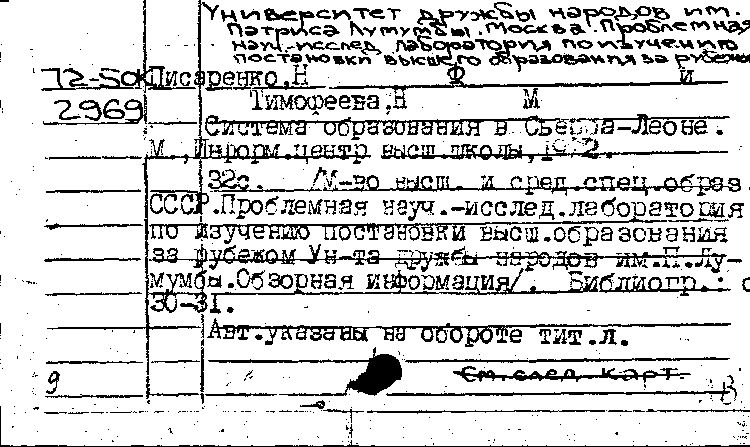 Университет дружбы народов им.
Патриса Лумумбы. Москва. Проблемная
науч.-исслед. лаборатория по изучению
постановки высшего образования за рубежом
72-50K Писаренко,Н Ф и
2969 Тимофеева,Н М
Система образования в Сьерра-Леоне.
М.,Информ.центр высш.школы,1972.
32с. /М-во высш. и сред.спец.образ.
СССР.Проблемная науч.-исслед.лаборатория
по изучению постановки высш.образования
за рубежом Ун-та дружбы народов им.П.Лу-
мумбы.Обзорная информация/. Библиогр.: с
30-31.
Авт.указаны на обороте тит.л.
9 См.след. карт. В